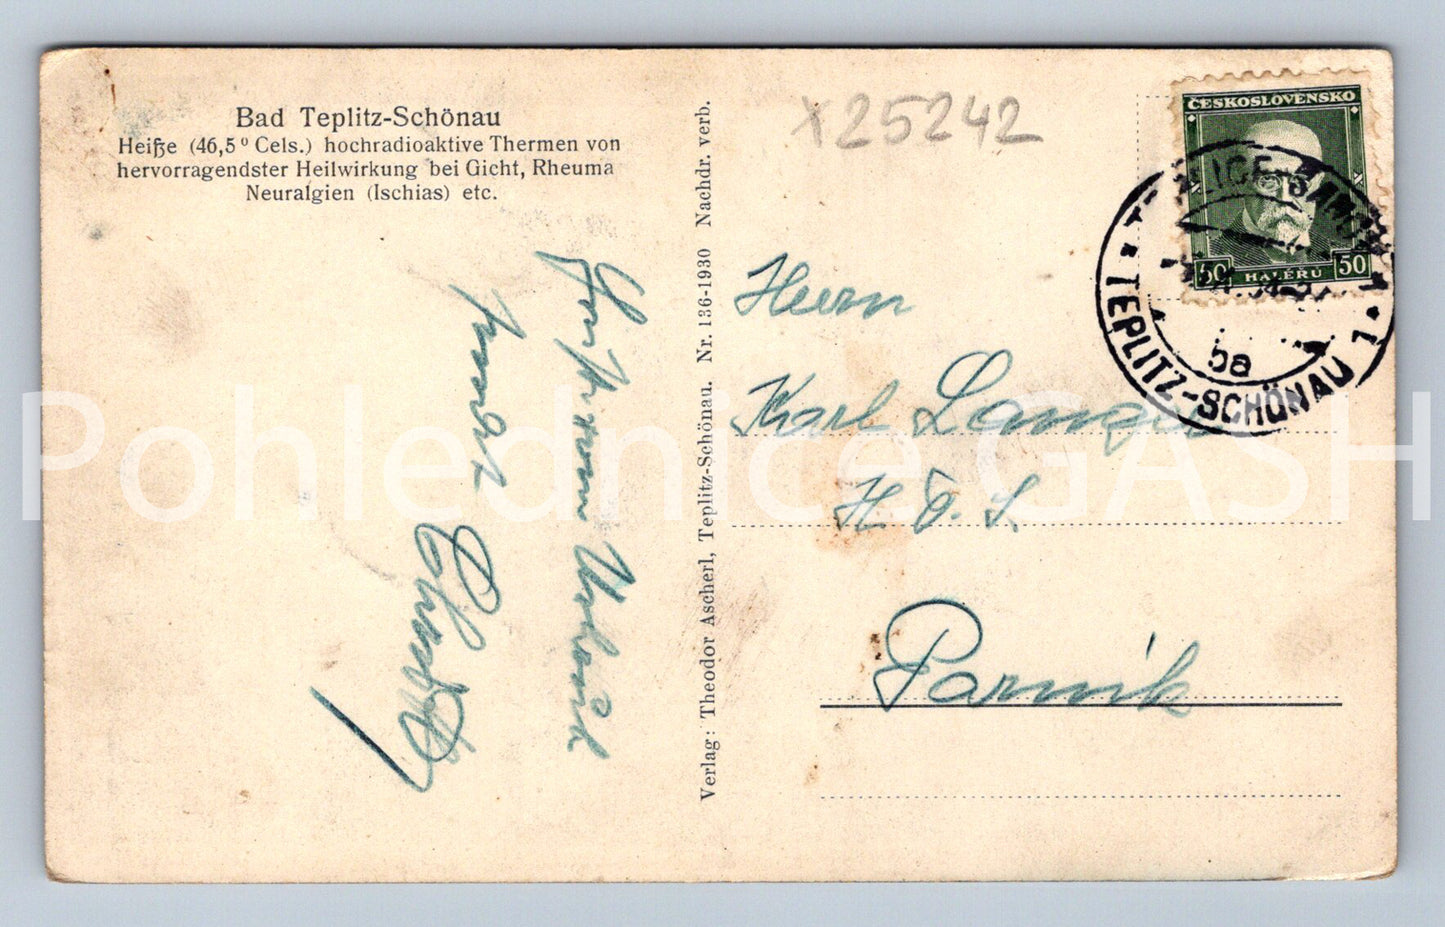 Bad Teplitz-Schönau
Heiße (46,5° Cels.) hochradioaktive Thermen von
hervorragendster Heilwirkung bei Gicht, Rheuma
Neuralgien (Ischias) etc.
x25242
ČESKOSLOVENSKO
50 HALÉŘŮ 50
TEPLITZ-SCHÖNAU 1
5a
Verlag: Theodor Ascherl, Teplitz-Schönau. Nr. 136-1930 Nachdr. verb.
vom Urlaub
Herrn
Karl Langer
H. Ö. L.
Parnik
Pohlednice GASH